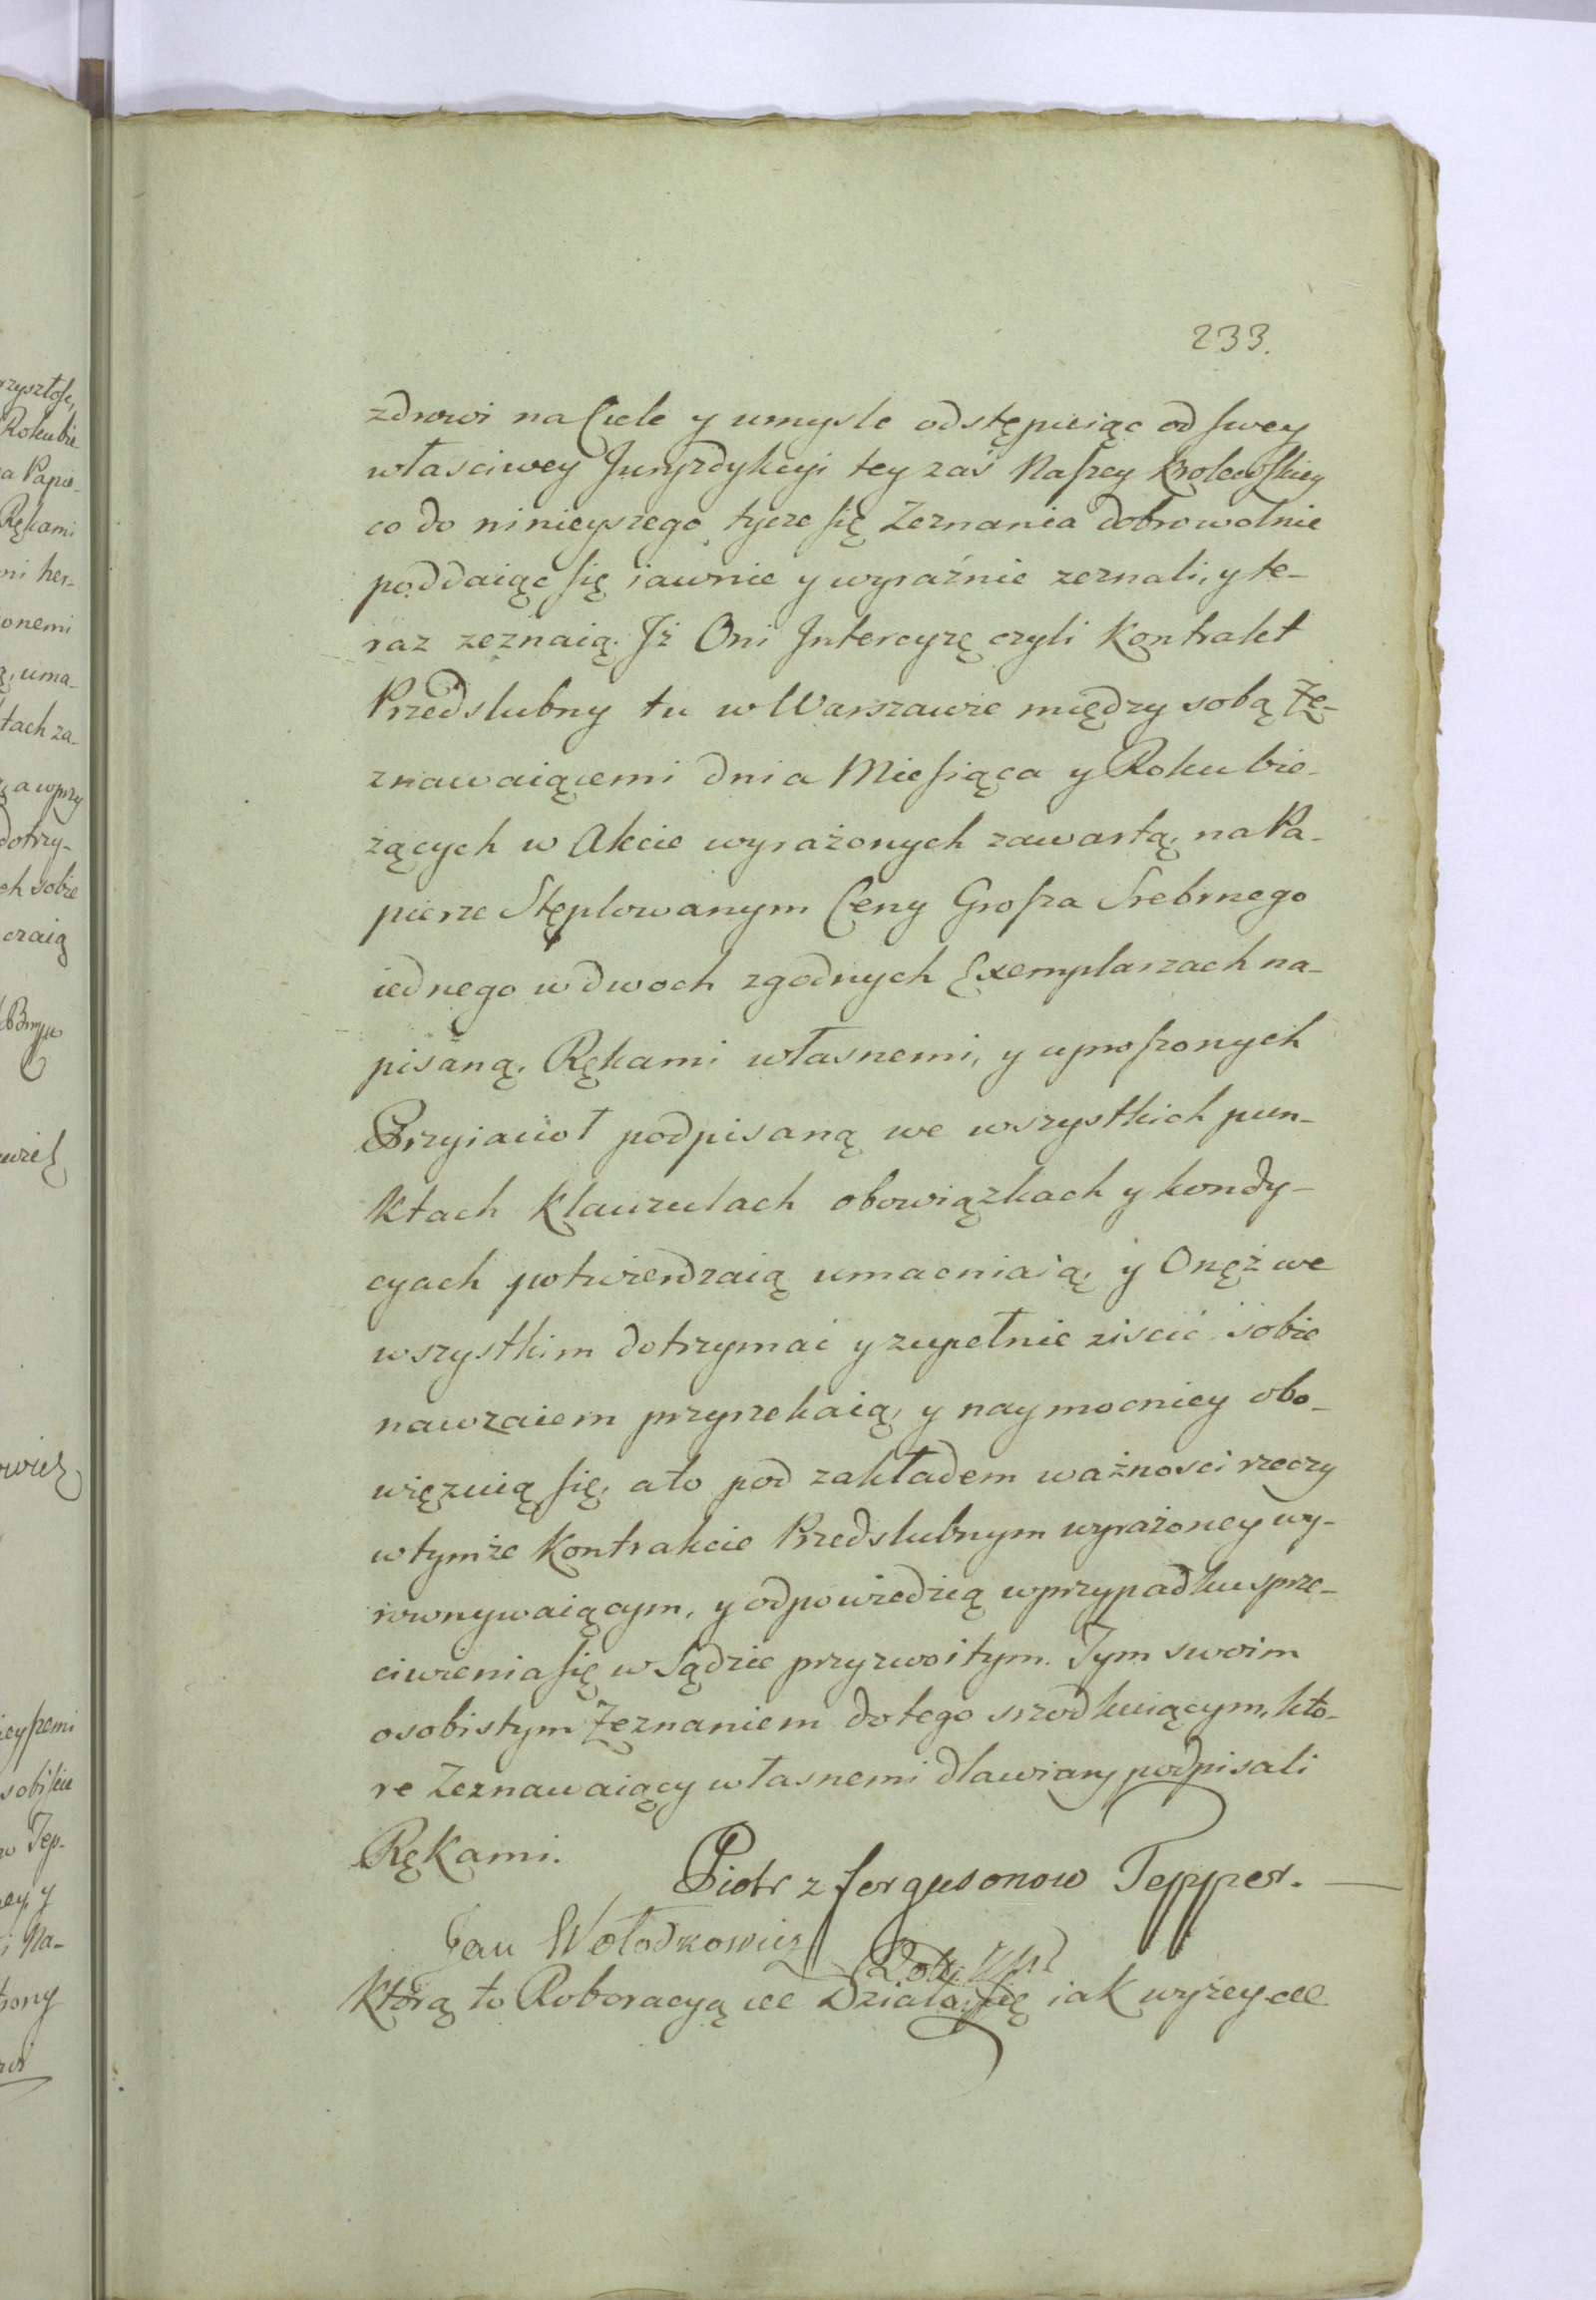 233.
zdrowi na Ciele y umysle odstępuiąc od swey
własciwey Juryzdykcyi tey zaś Naszey Krolewskiey
co do ninieyszego tycze się Zeznania dobrowolnie
poddaiąc się iawnie y wyraźnie zeznali, y te-
raz zeznaią. Jż Oni Intercyzę czyli Kontrakt
Przedslubny tu w Warszawie między sobą Ze-
znawaiącemi dnia Miesiąca y Roku bie-
żących w Akcie wyrażonych zawartą, na Pa-
pierze Stęplowanym Ceny Grosza Srebrnego
iednego w dwoch zgodnych Exemplarzach na-
pisaną, Rękami własnemi, y uproszonych
Przyiacioł podpisaną we wszystkich pun-
ktach Klauzulach obowiązkach y kondy-
cyach potwierdzaią umacniaią, y Onęż we
wszystkim dotrzymać y zupełnie ziscić sobie
nawzaiem przyrzekaią, y naymocniey obo-
więzuią się, a to pod zakładem ważnosci rzeczy
w tymże Kontrakcie Przedslubnym wyrażoney wy-
rownywaiącym, y odpowiedzią w przypadku sprze-
ciwienia się w Sądzie przyzwoitym. Tym swoim
osobistym Zeznaniem do tego srzodkuiącym, kto-
re Zeznawaiący własnemi dla wiary podpisali
Rękami.
Piotr z fergusonow Tepper.
Jan Wołodkowicz
Którą to Roboracyą ut Działo się iak wyżey ut
rzyszłośc,
Roku bie
a Papie-
Rękami
ni her-
onemi
ą, uma-
tach za-
ą a w przy
dotrzy-
ch sobie
czaią
wicz
owicz
ieyszemi
sobiscie
w Tep-
ey, y
i Na-
rony